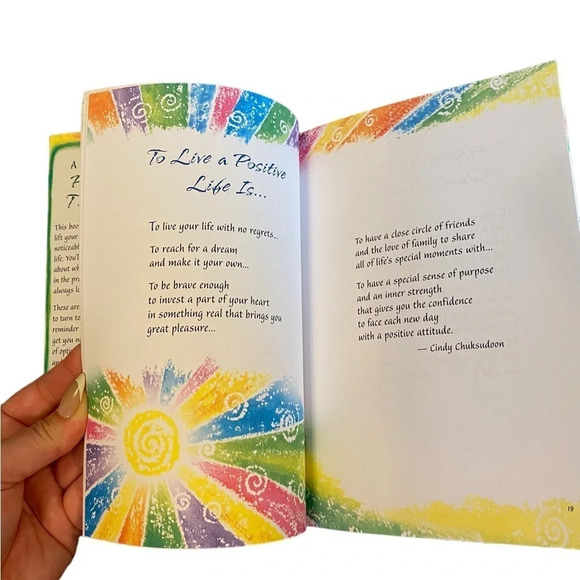 A
This boo
lift your
noticeabl
life. You'l
about wh
in the pr
always lo
These are
to turn to
reminder
get you n
of optim
and
To Live a Positive
Life Is...
To live your life with no regrets...
To reach for a dream
and make it your own...
To be brave enough
to invest a part of your heart
in something real that brings you
great pleasure...
To have a close circle of friends
and the love of family to share
all of life's special moments with...
To have a special sense of purpose
and an inner strength
that gives you the confidence
to face each new day
with a positive attitude.
— Cindy Chuksudoon
19